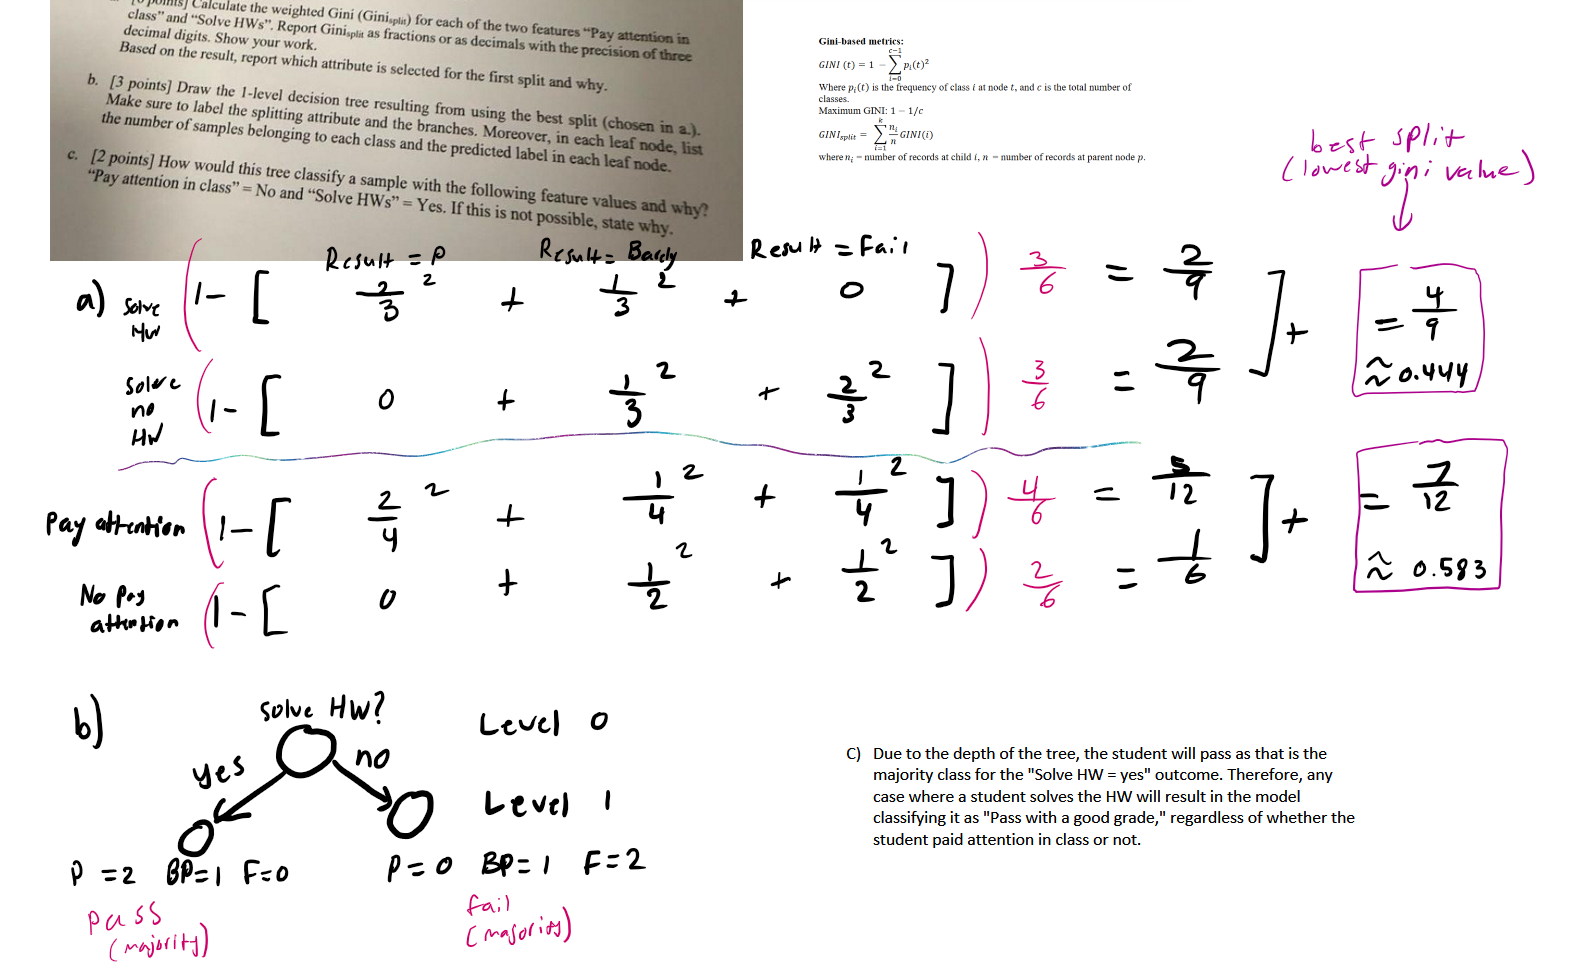 Calculate the weighted Gini (Gini_split) for each of the two features "Pay attention in
class" and "Solve HWs". Report Gini_split as fractions or as decimals with the precision of three
decimal digits. Show your work.
Based on the result, report which attribute is selected for the first split and why.
b. [3 points] Draw the 1-level decision tree resulting from using the best split (chosen in a.).
Make sure to label the splitting attribute and the branches. Moreover, in each leaf node, list
the number of samples belonging to each class and the predicted label in each leaf node.
c. [2 points] How would this tree classify a sample with the following feature values and why?
"Pay attention in class" = No and "Solve HWs" = Yes. If this is not possible, state why.
Gini-based metrics:
GINI (t) = 1 − ∑_{i=0}^{c−1} p_i(t)²
Where p_i(t) is the frequency of class i at node t, and c is the total number of
classes.
Maximum GINI: 1 − 1/c
GINI_split = ∑_{i=1}^{k} n_i/n GINI(i)
where n_i = number of records at child i, n = number of records at parent node p.
best split
(lowest gini value)
Result = P Result = Barely Result = Fail
a) Solve HW (1 - [ 2/3 ² + 1/3 ² + 0 ]) 3/6 = 2/9 ] + = 4/9 ≈ 0.444
Solve no HW (1 - [ 0 + 1/3 ² + 2/3 ² ]) 3/6 = 2/9
Pay attention (1 - [ 2/4 ² + 1/4 ² + 1/4 ² ]) 4/6 = 5/12 ] + = 7/12 ≈ 0.583
No Pay attention (1 - [ 0 + 1/2 ² + 1/2 ² ]) 2/6 = 1/6
b)
Solve HW? Level 0
yes no
Level 1
P = 2 BP = 1 F = 0 P = 0 BP = 1 F = 2
pass fail
(majority) (majority)
C) Due to the depth of the tree, the student will pass as that is the
majority class for the "Solve HW = yes" outcome. Therefore, any
case where a student solves the HW will result in the model
classifying it as "Pass with a good grade," regardless of whether the
student paid attention in class or not.